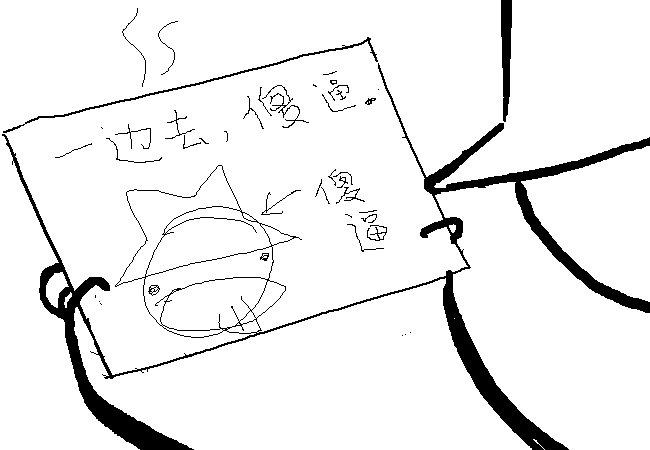 一边去，傻逼。
傻
逼